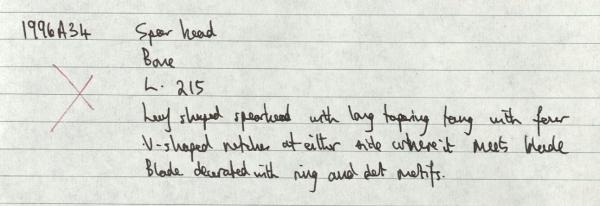 1996A34 Spear head
Bone
L. 215
Leaf shaped spearhead with long tapering tang with four
V-shaped notches at either side where it meets blade
Blade decorated with ring and dot motifs.